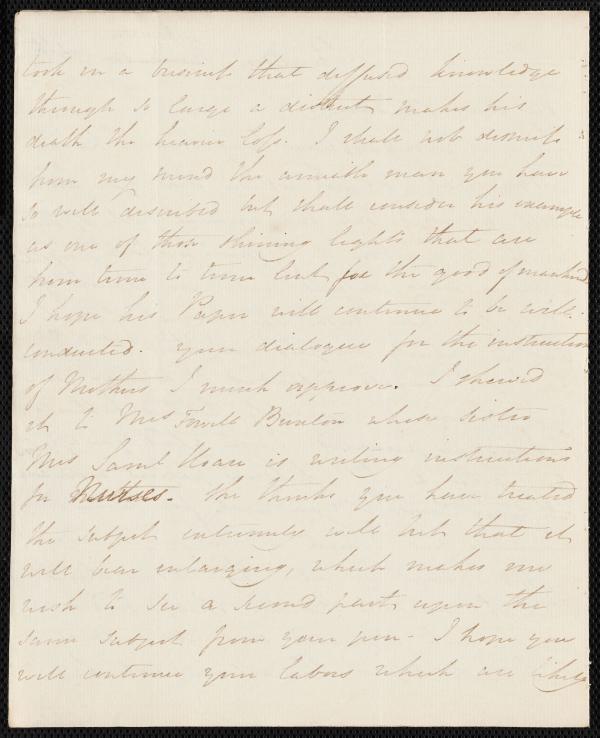 took in a business that diffused knowledge
through so large a district makes his
death the heavier loss. I shall not dismiss
from my mind the amiable man you have
so well described but shall consider his example
as one of those shining lights that are
from time to time lent for the good of mankind
I hope his Paper will continue to be well
conducted. your dialogue for the instruction
of Mothers I much approve. I shewed
it to Mrs Fowell Buxton whose sister
Mrs Saml Hoare is writing instructions
for Nurses. She thinks you have treated
the subject extremely well but that it
will bear enlarging, which makes me
wish to see a second part upon the
same subject from your pen - I hope you
will continue your labors which are likely